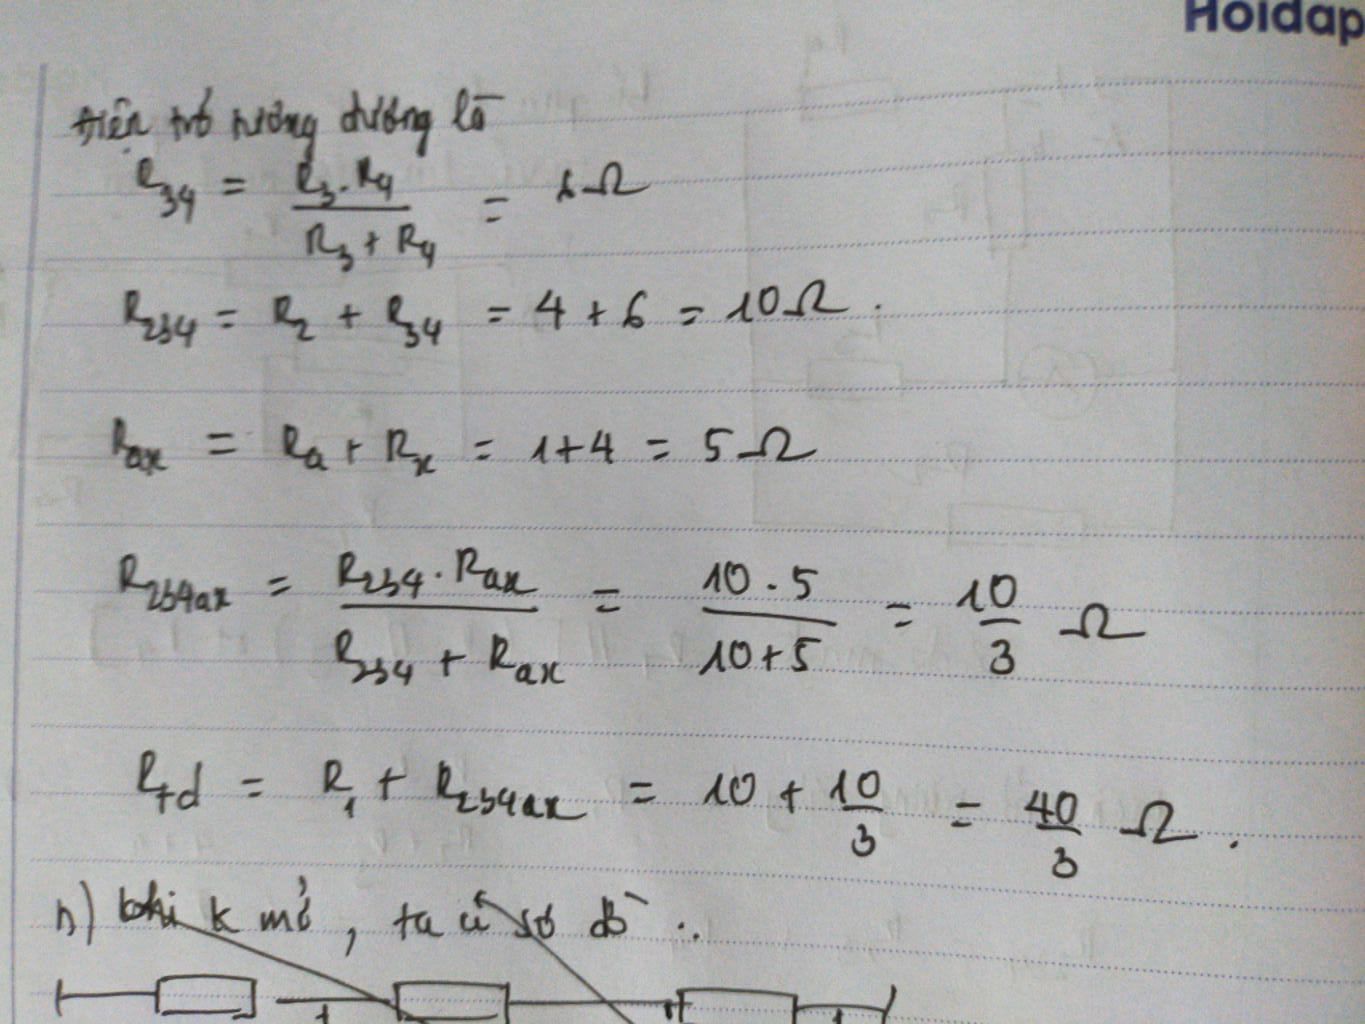 Hoidap
Điện trở tương đương là
R₃₄ = (R₃.R₄)/(R₃ + R₄) = 6Ω
R₂₃₄ = R₂ + R₃₄ = 4 + 6 = 10Ω.
Rax = Ra + Rx = 1+4 = 5Ω
R₂₃₄ax = (R₂₃₄.Rax)/(R₂₃₄ + Rax) = (10.5)/(10+5) = 10/3 Ω
Rtd = R₁ + R₂₃₄ax = 10 + 10/3 = 40/3 Ω.
khi k mở, ta có sơ đồ :